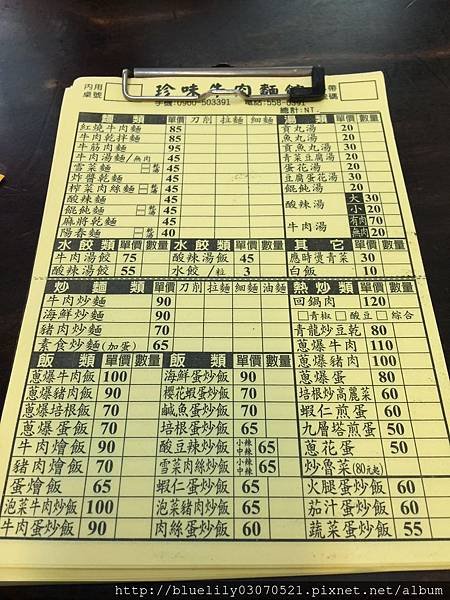 內用
桌號
珍味牛肉麵館
帶
號碼
手機:0960-503391 電話:558-0391
總計:NT.
麵類 單價 刀削 拉麵 細麵
紅燒牛肉麵 85
牛肉乾拌麵 85
牛筋肉麵 95
牛肉湯麵/無肉 45
雪菜麵 45
炸醬乾麵 45
榨菜肉絲麵 45
酸辣麵 45
餛飩麵 45
麻將乾麵 40
陽春麵 40
湯類 單價 數量
貢丸湯 20
魚丸湯 20
貢魚丸湯 30
青菜豆腐湯 20
蛋花湯 20
豆腐蛋花湯 30
餛飩湯 20
酸辣湯 大 30
小 20
牛肉湯 有肉 70
無肉 20
水餃類 單價 數量 水餃類 單價 數量
牛肉湯餃 75 酸辣湯飯 45
酸辣湯餃 55 水餃/粒 3
其它 單價 數量
應時燙青菜 30
白飯 10
炒麵類 單價 刀削 拉麵 細麵 油麵
牛肉炒麵 90
海鮮炒麵 90
豬肉炒麵 70
素食炒麵(加蛋) 65
熱炒類 單價 數量
回鍋肉 120
□青椒 □酸豆 □綜合
青龍炒豆乾 80
蔥爆牛肉 110
蔥爆豬肉 100
蔥爆蛋 80
培根炒高麗菜 60
蝦仁煎蛋 60
九層塔煎蛋 50
蔥花蛋 50
炒魯菜(80元起)
火腿蛋炒飯 60
茄汁蛋炒飯 60
蔬菜蛋炒飯 55
飯類 單價 數量 飯類 單價 數量
蔥爆牛肉飯 100 海鮮蛋炒飯 90
蔥爆豬肉飯 90 櫻花蝦蛋炒飯 70
蔥爆培根飯 70 鹹魚蛋炒飯 70
蔥爆蛋飯 70 培根蛋炒飯 65
牛肉燴飯 90 酸豆辣炒飯 小辣 中辣 65
豬肉燴飯 70 雪菜肉絲炒飯 小辣 中辣 65
蛋燴飯 65 蝦仁蛋炒飯 65
泡菜牛肉炒飯 100 泡菜豬肉炒飯 65
牛肉蛋炒飯 90 肉絲蛋炒飯 60
http://bluelily03070521.pixnet.net/album